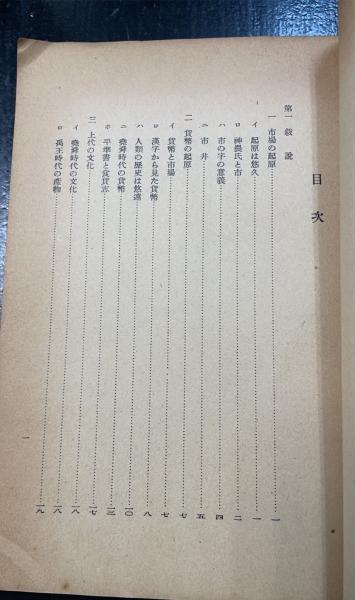 目次
第一 叙説
一 市場の起原……一
イ 起原は悠久……一
ロ 神農氏と市……二
ハ 市の字の意義……四
ニ 市井……五
二 貨幣の起原……七
イ 貨幣と市場……七
ロ 漢字から見た貨幣……八
ハ 人類の歴史は悠遠
ニ 堯舜時代の貨幣……一〇
ホ 平準書と食貨志……一三
三 上代の文化……一七
イ 堯舜時代の文化……一八
ロ 禹王時代の産物……一九
一